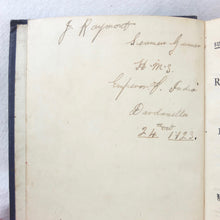 J. Raymont
Seaman Gunner
H.M.S.
Emperor of India
Dardanelles
24th Oct 1923.